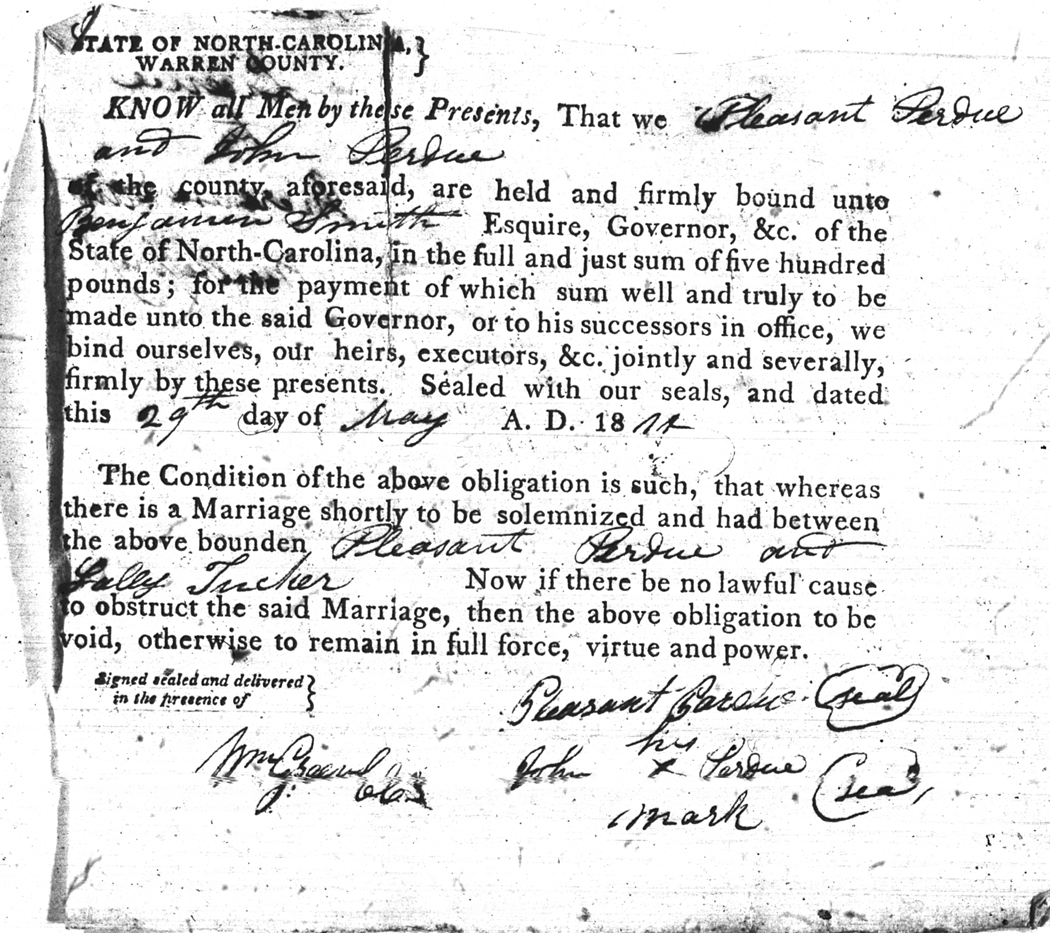 STATE OF NORTH-CAROLINA, }
WARREN COUNTY.
KNOW all Men by these Presents, That we Pleasant Perdue
and John Perdue
of the county aforesaid, are held and firmly bound unto
Benjamin Smith Esquire, Governor, &c. of the
State of North-Carolina, in the full and just sum of five hundred
pounds; for the payment of which sum well and truly to be
made unto the said Governor, or to his successors in office, we
bind ourselves, our heirs, executors, &c. jointly and severally,
firmly by these presents. Sealed with our seals, and dated
this 29th day of May A. D. 18
The Condition of the above obligation is such, that whereas
there is a Marriage shortly to be solemnized and had between
the above bounden Pleasant Perdue and
Sally Tucker Now if there be no lawful cause
to obstruct the said Marriage, then the above obligation to be
void, otherwise to remain in full force, virtue and power.
Signed sealed and delivered }
in the presence of
Pleasant (seal)
his
Wm John x Perdue (seal)
mark